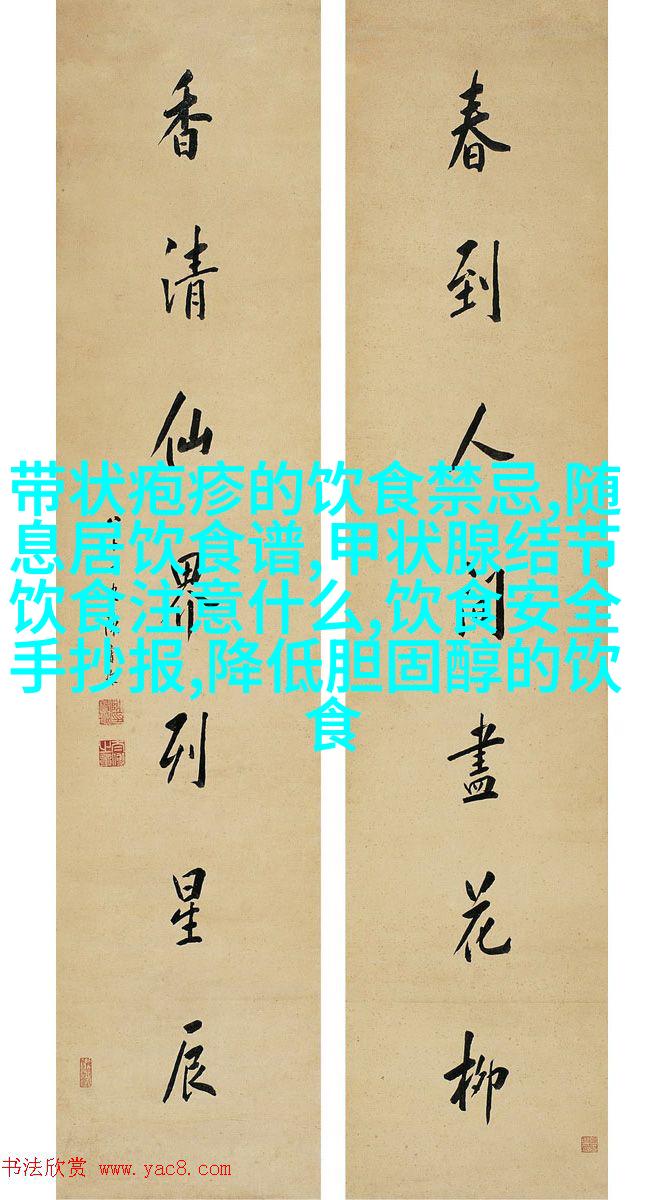 春到人间尽花柳
香清仙界列星辰
带状疱疹的饮食禁忌,随
息居饮食谱,甲状腺结节
饮食注意什么,饮食安全
手抄报,降低胆固醇的饮
食
书法欣赏 www.yac8.com